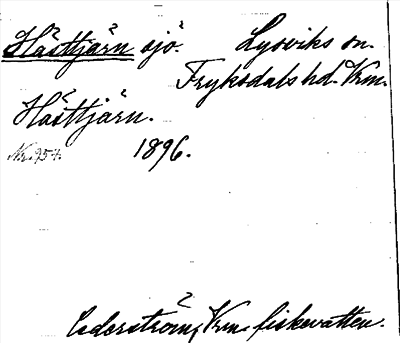 Hästtjärn sjö. Lysviks sn.
Fryksdals hd. Vrm.
Hästtjärn.
Nr. 957. 1896.
Cederström, Vrm. fiskevatten.